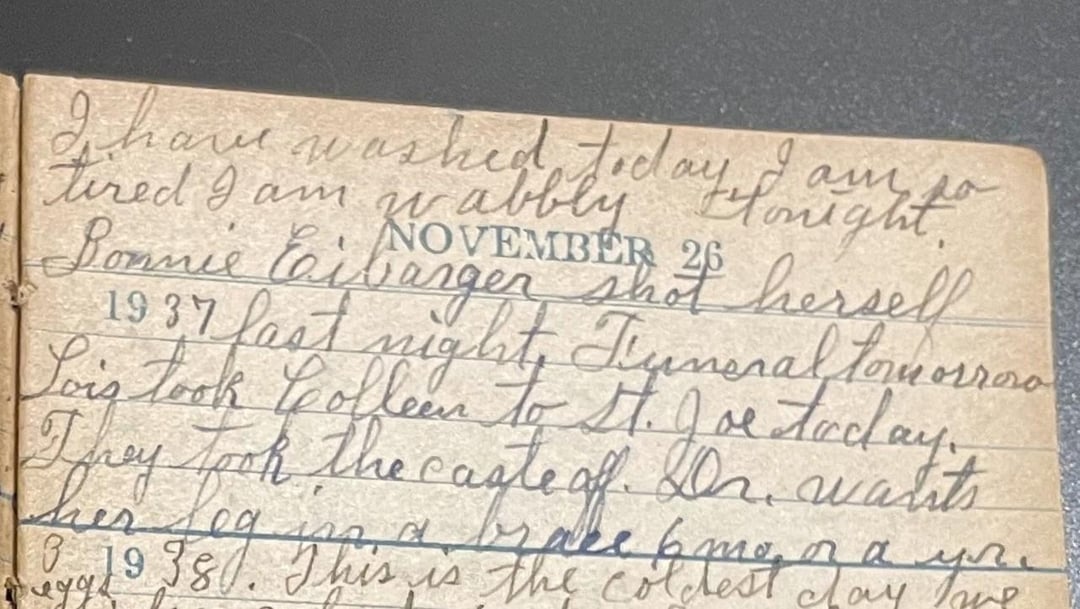 I have washed today I am so
tired I am wabbly tonight.
NOVEMBER 26
Bonnie Eibarger shot herself
1937 last night. Funeral tomorrow
Lois took Colleen to St. Joe today.
They took the caste off. Dr. wants
her leg in a brace 6 mo. or a yr.
8 1938. This is the coldest day we
eggs